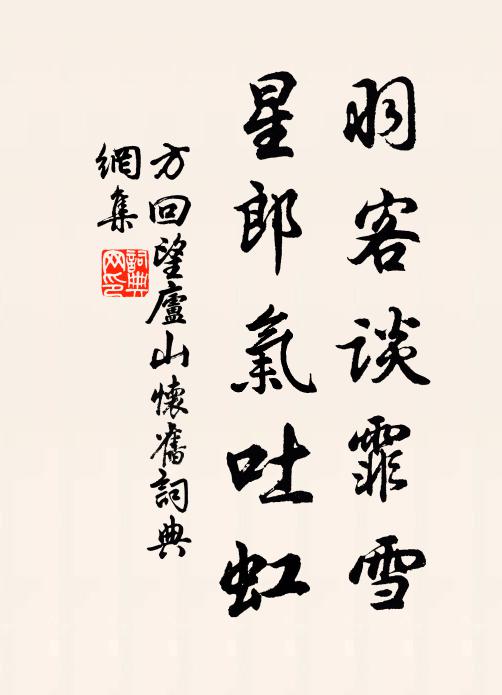 羽客谈霏雪
星郎氣吐虹
方回望廬山懷舊詞典
網集
詞典
网印